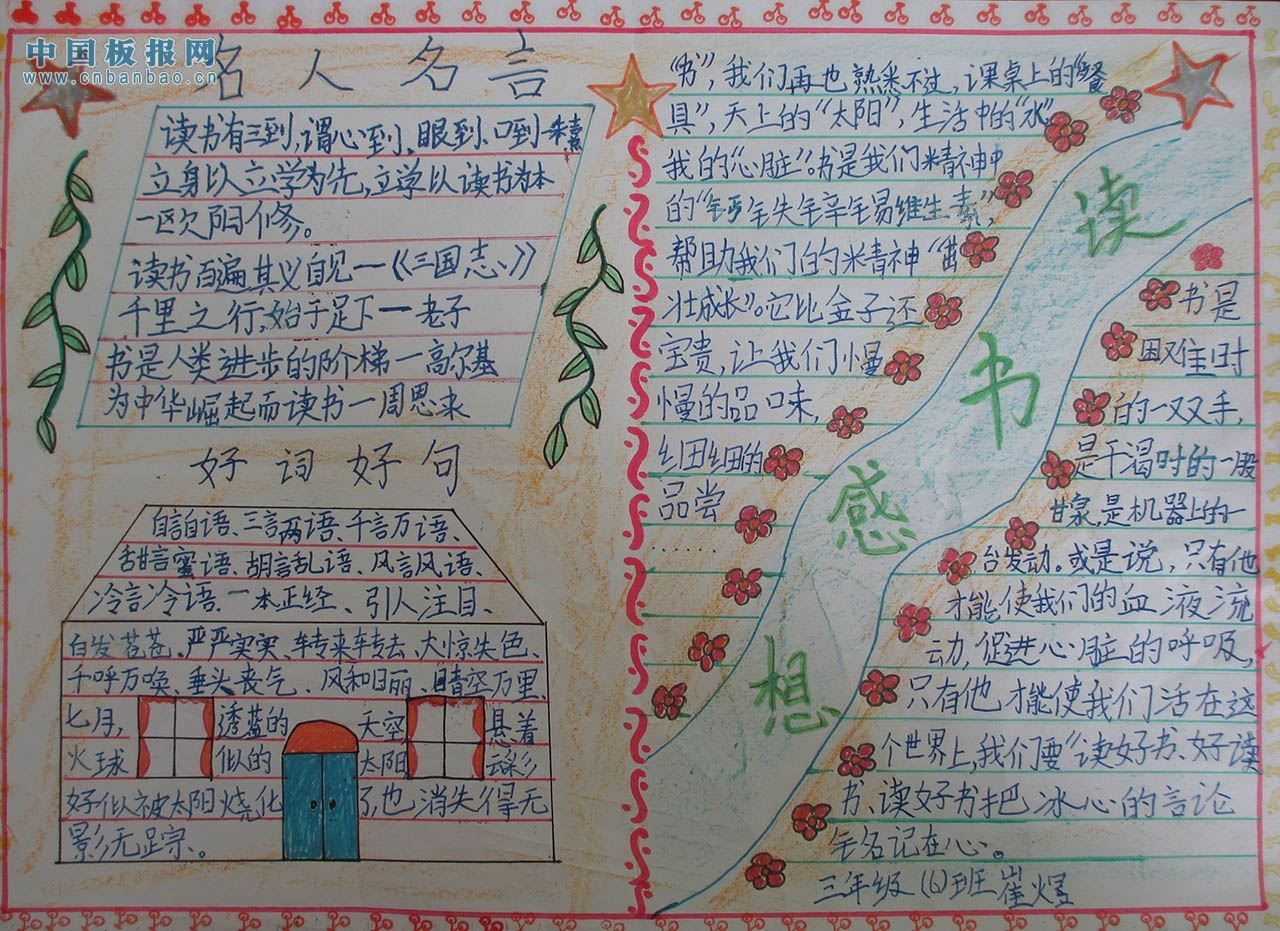 中国板报网
www.cnbanbao.cn
名人名言
读书有三到,谓心到,眼到、口到一朱熹
立身以立学为先,立学以读书为本
一区欠阳修。
读书百遍其义自见一《三国志》
千里之行,始于足下一老子
书是人类进步的阶梯一高尔基
为中华崛起而读书一周恩来
好词好句
自言自语、三言两语、千言万语、
甜言蜜语、胡言乱语、风言风语、
冷言冷语、一本正经、引人注目、
白发苍苍、严严实实、转来转去、大惊失色、
千呼万唤、垂头丧气、风和日丽、晴空万里、
七月,透蓝的天空悬着
火球似的太阳
好似被太阳烧化了,也消失得无
影无踪。
读书感想
“书”,我们再也熟悉不过,课桌上的“餐
具”,天上的“太阳”,生活中的“水”
我的“心脏”。书是我们精神中
的“钙铁锌锡维生素”,
帮助我们的精神“茁
壮成长”。它比金子还
宝贵,让我们慢
慢的品味,
细细的
品尝
……
书是
困难时
的一双手,
是干渴时的一股
甘泉,是机器上的一
台发动。或是说,只有他
才能使我们的血液流
动,促进心脏的呼吸,
只有他才能使我们活在这
个世界上,我们要“读好书、好读
书、读好书把冰心的言论
铭记在心。
三年级(6)班崔